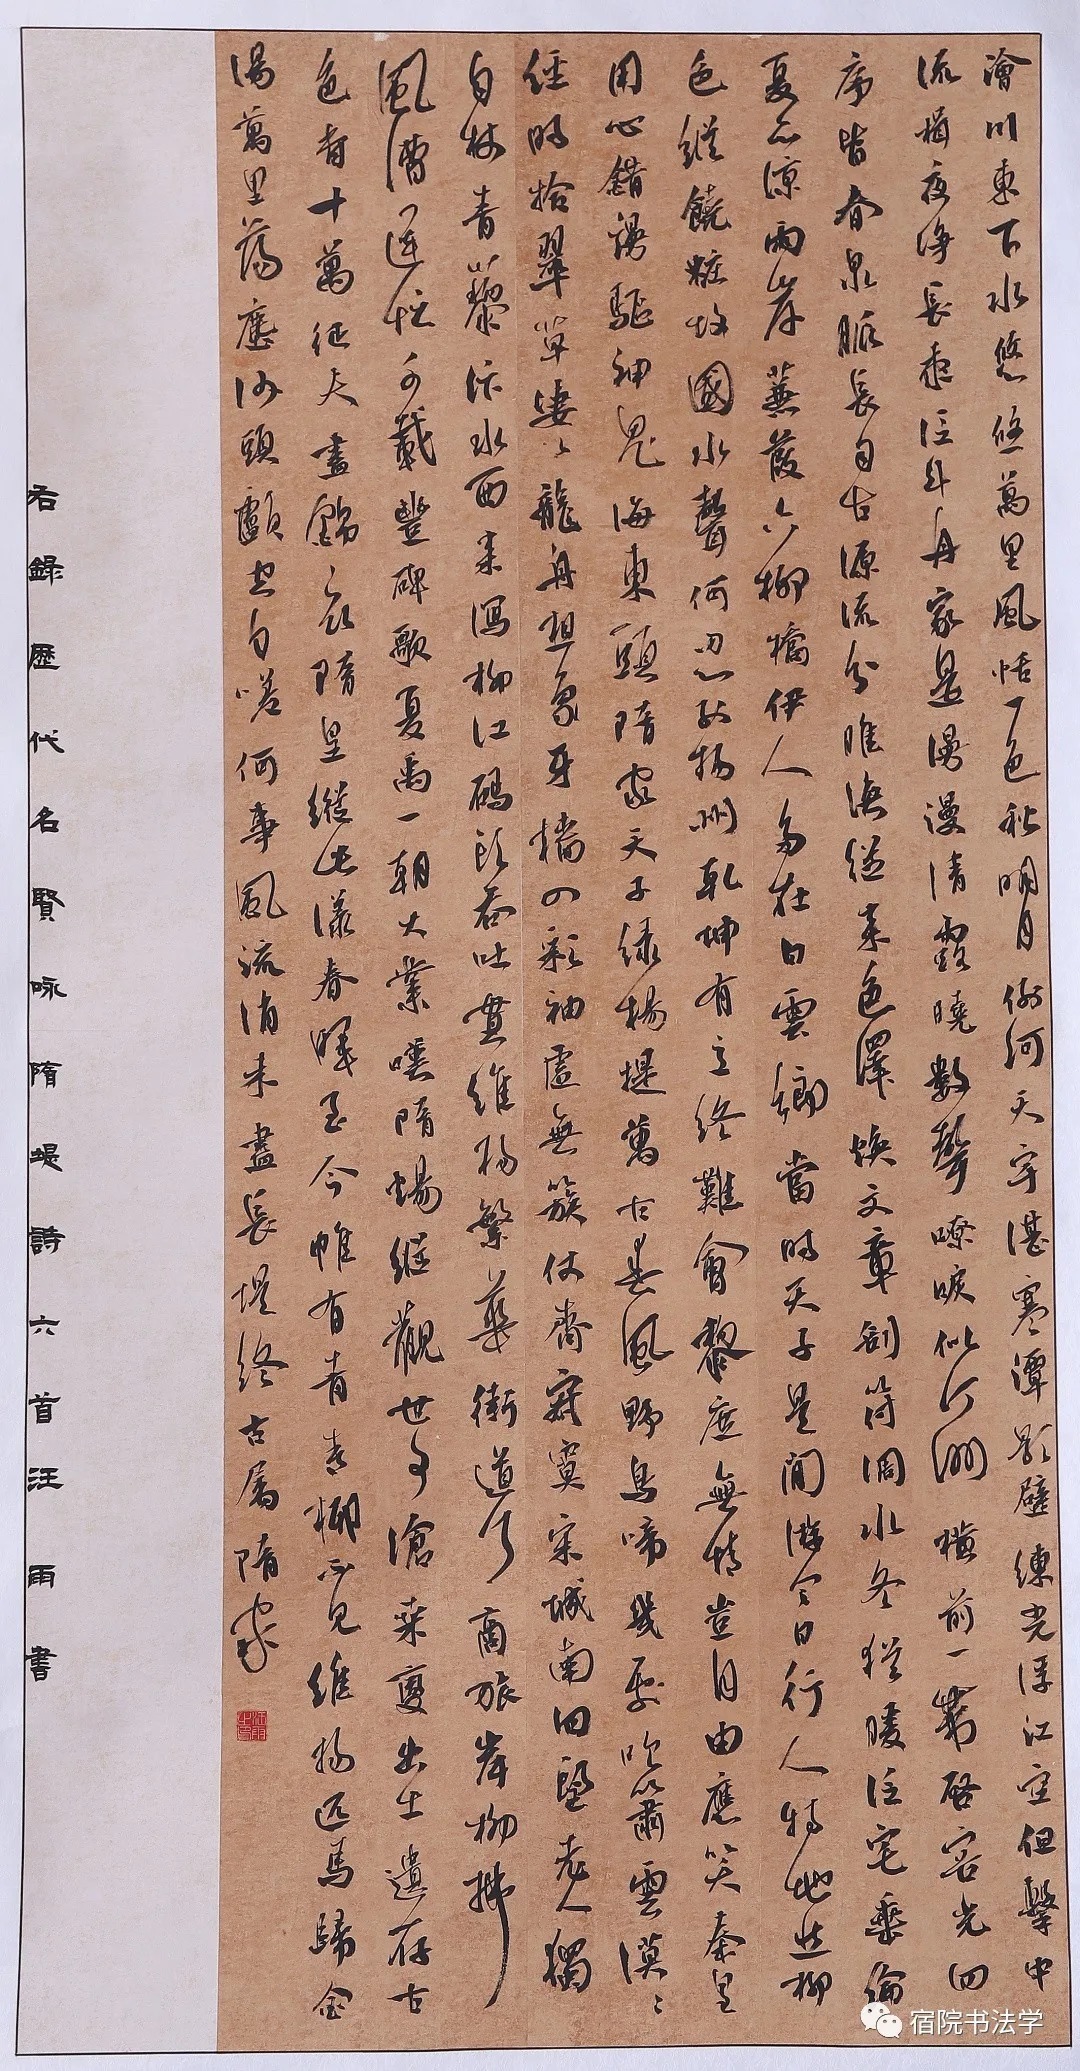 澮川東下水悠悠萬里風恬一色秋明月倚河天宇湛寒潭影壁練光浮江空但擊中
流楫夜淨長虛泛斗舟家是漫漫清霞曉數聲嘹唳似河洲橫前一帶啓容光四
序皆春泉脈長自古源流分睢渙從來色澤煥文章剖符澗水冬猶暖泛宅垂綸
夏亦涼兩岸蒹葭六柳橋伊人多在白雲鄉當時天子是閒遊今日行人特地愁柳
色縱饒粧故國水聲何忍到揚州乾坤有主終難會黎庶無情豈自由應笑秦皇
用心錯謾驅神鬼海東頭隋家天子綠楊堤萬古春風野鳥啼幾處吹簫雲漠漠
經時拾翠草萋萋龍舟想象牙檣四彩袖虛無簇仗齊寂寞宋城南回望老人獨
自杖青藜汴水西來瀉柳江碼頭吞吐貫維揚繁華街道行商旅岸柳拂
風漕運忙千載豐碑歌夏禹一朝大業嘆隋煬縱觀世事滄桑變出土遺存古
色香十萬征夫盡錦衣隋皇縱此漾春暉至今惟有青青柳不見維揚匹馬歸金
湯萬里蕩塵沙頭顱空自嗟何事風流消未盡長堤終古屬隋家
右錄歷代名賢咏隋堤詩六首汪雨書
宿院书法学